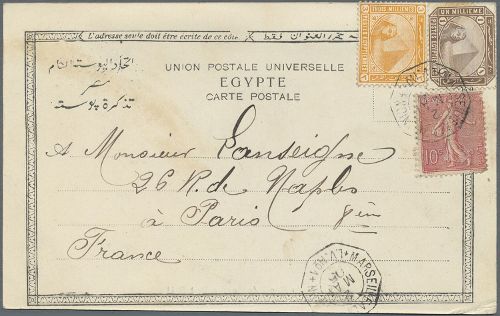 L'adresse seule doit être écrite de ce côté
UNION POSTALE UNIVERSELLE
EGYPTE
CARTE POSTALE
اتحاد البوستة العام
مصر
تذكرة بوسته
UN MILLIEME
10
A Monsieur Lanseigne
26 R. de Naples
à Paris 8èm
France
MARSEILLE